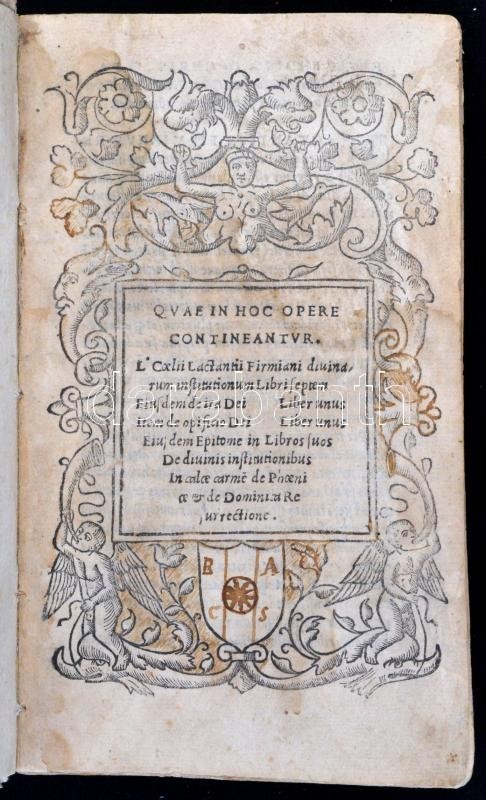 QVAE IN HOC OPERE
CONTINEANTVR.
L. Cælii Lactantii Firmiani diuina,
rum institutionum Libri septem
Eiusdem de ira Dei Liber unus
item de opificio Dei Liber unus
Eiusdem Epitome in Libros suos
De diuinis institutionibus
In calce carmē de Phœni
ce & de Dominica Re
surrectione.
R A
C S
darabanth